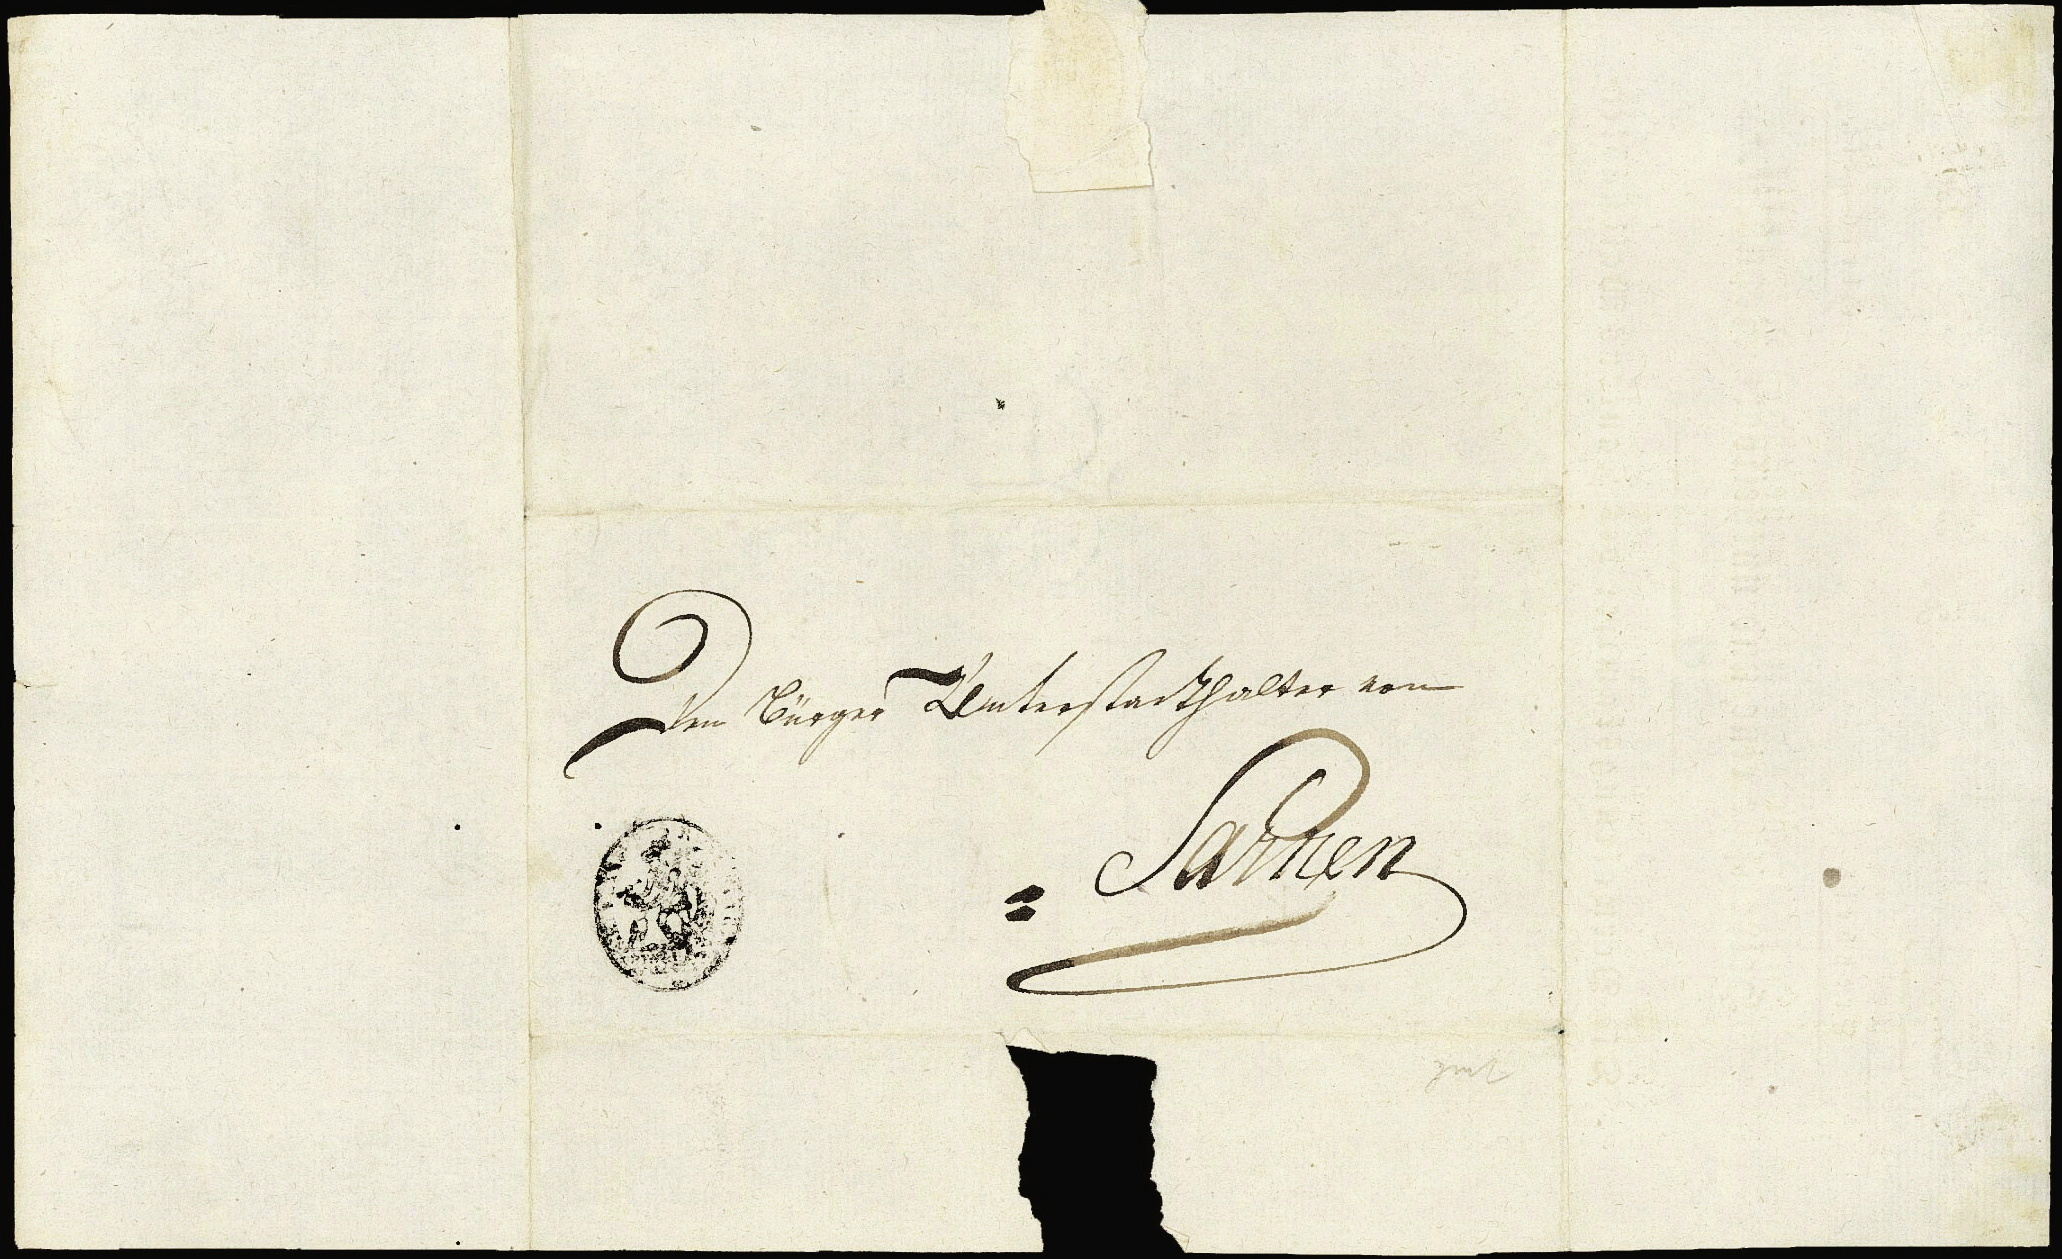 Dem Bürger Unterstatthalter von
Sarnen